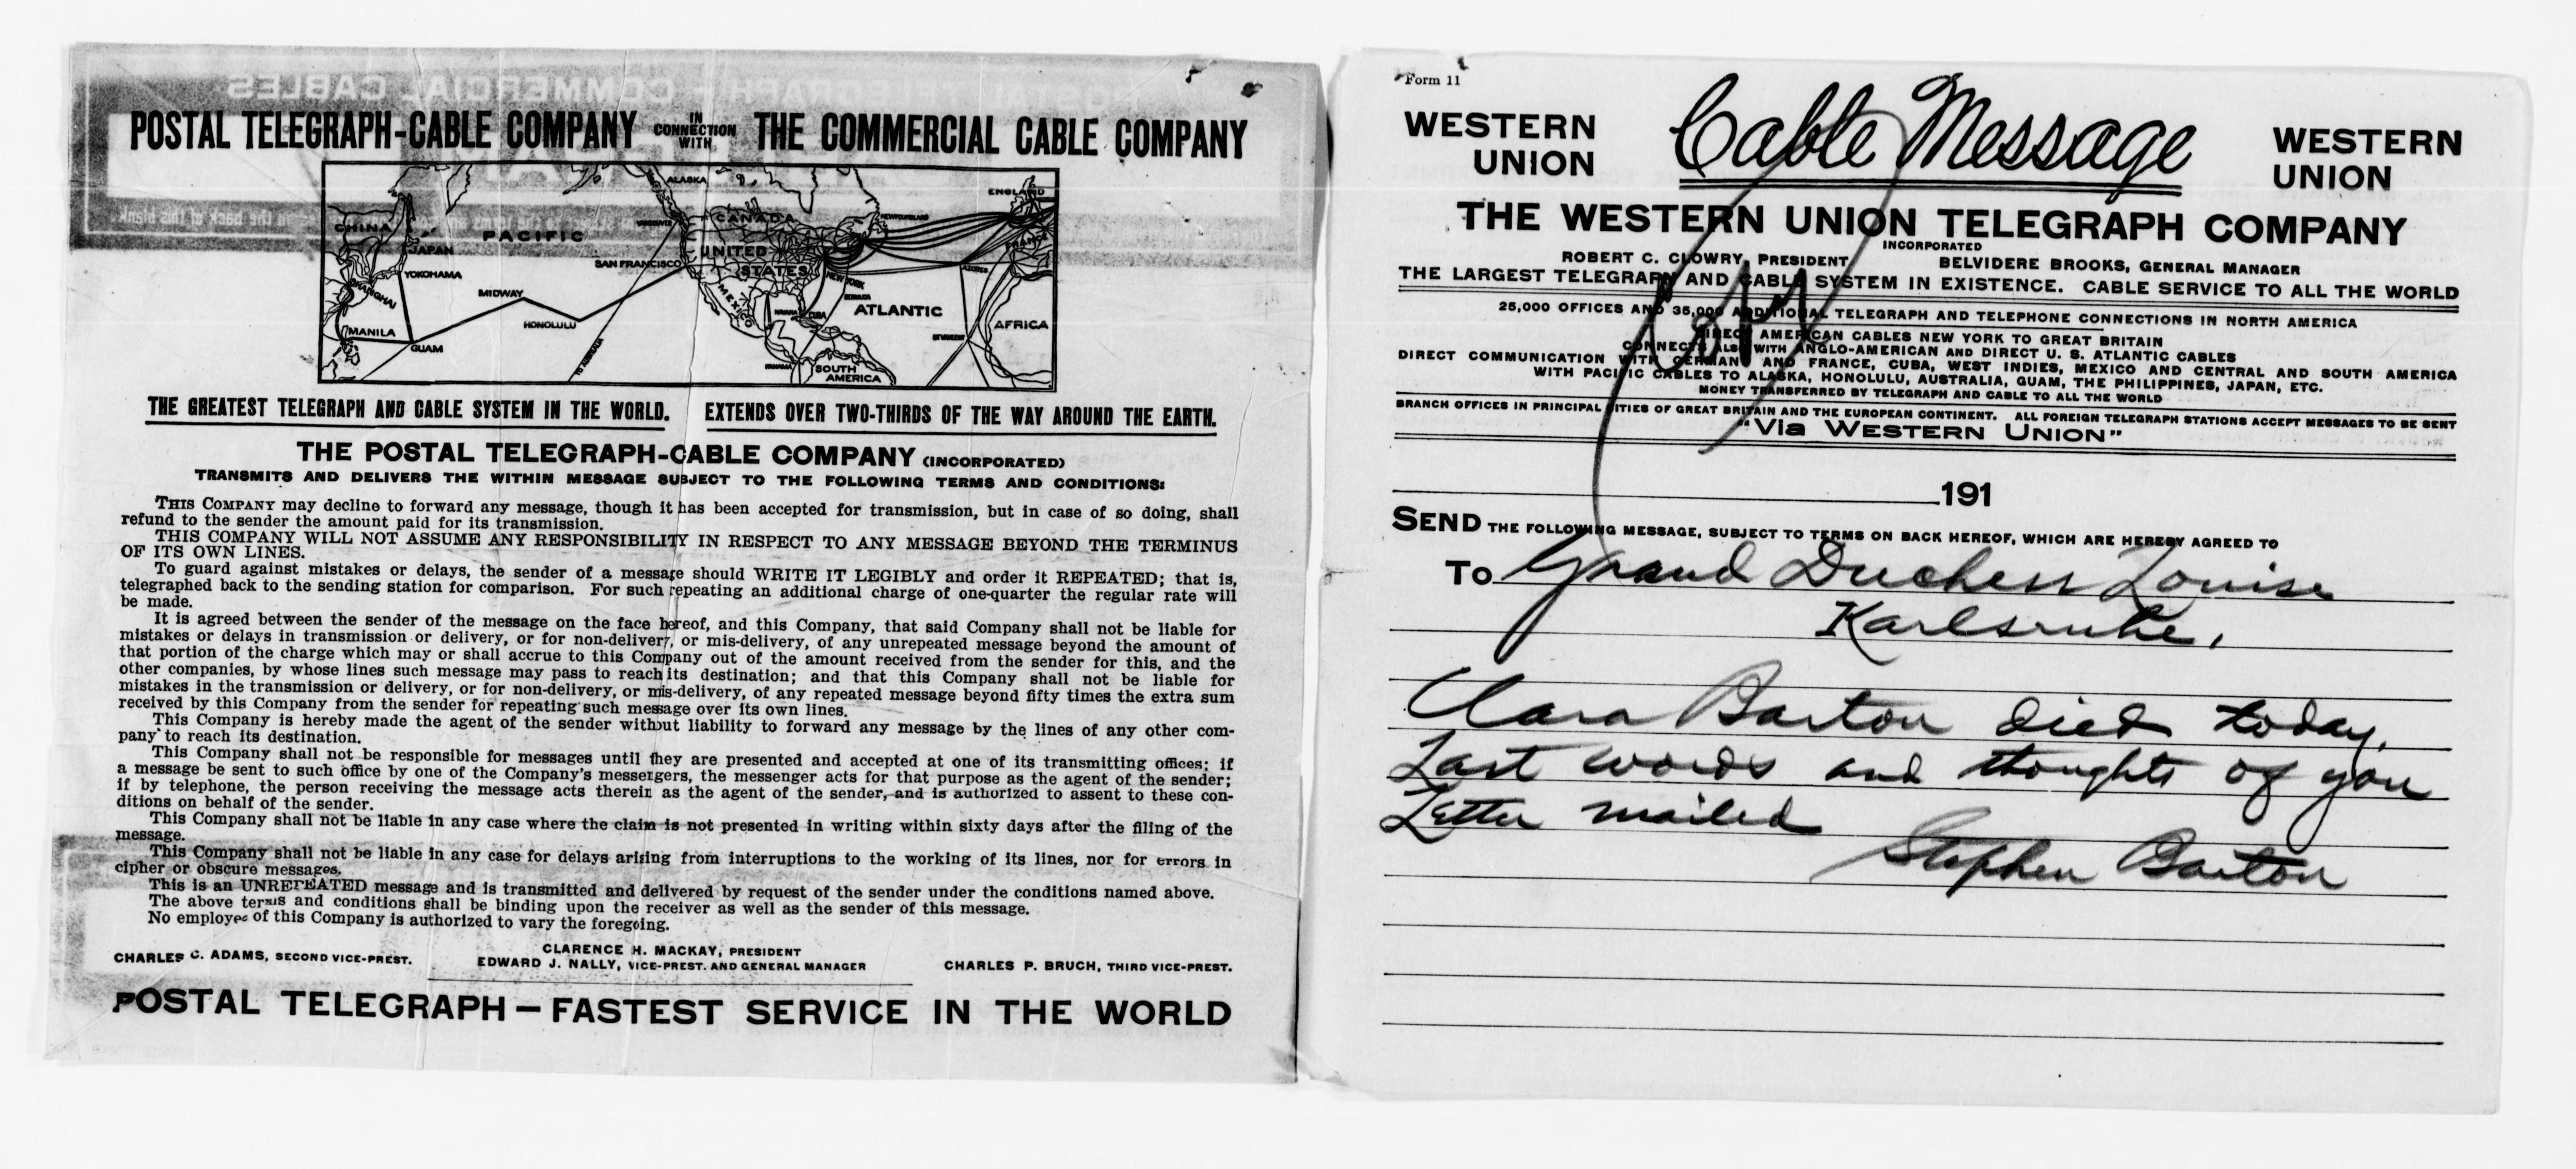 POSTAL TELEGRAPH-CABLE COMPANY IN CONNECTION WITH THE COMMERCIAL CABLE COMPANY
ALASKA
ENGLAND
NEWFOUNDLAND
CHINA
CANADA
VANCOUVER
PACIFIC
FRANCE
JAPAN
UNITED
SAN FRANCISCO
STATES
AZORES
YOKOHAMA
NEW YORK
SHANGHAI
MIDWAY
MEXICO
BERMUDA
ATLANTIC
HAVANA
CUBA
HONOLULU
AFRICA
MANILA
GUAM
PANAMA
SOUTH
AMERICA
THE GREATEST TELEGRAPH AND CABLE SYSTEM IN THE WORLD. EXTENDS OVER TWO-THIRDS OF THE WAY AROUND THE EARTH.
THE POSTAL TELEGRAPH-CABLE COMPANY (INCORPORATED)
TRANSMITS AND DELIVERS THE WITHIN MESSAGE SUBJECT TO THE FOLLOWING TERMS AND CONDITIONS:
THIS COMPANY may decline to forward any message, though it has been accepted for transmission, but in case of so doing, shall
refund to the sender the amount paid for its transmission.
THIS COMPANY WILL NOT ASSUME ANY RESPONSIBILITY IN RESPECT TO ANY MESSAGE BEYOND THE TERMINUS
OF ITS OWN LINES.
To guard against mistakes or delays, the sender of a message should WRITE IT LEGIBLY and order it REPEATED; that is,
telegraphed back to the sending station for comparison. For such repeating an additional charge of one-quarter the regular rate will
be made.
It is agreed between the sender of the message on the face hereof, and this Company, that said Company shall not be liable for
mistakes or delays in transmission or delivery, or for non-delivery, or mis-delivery, of any unrepeated message beyond the amount of
that portion of the charge which may or shall accrue to this Company out of the amount received from the sender for this, and the
other companies, by whose lines such message may pass to reach its destination; and that this Company shall not be liable for
mistakes in the transmission or delivery, or for non-delivery, or mis-delivery, of any repeated message beyond fifty times the extra sum
received by this Company from the sender for repeating such message over its own lines.
This Company is hereby made the agent of the sender without liability to forward any message by the lines of any other com-
pany to reach its destination.
This Company shall not be responsible for messages until they are presented and accepted at one of its transmitting offices; if
a message be sent to such office by one of the Company's messengers, the messenger acts for that purpose as the agent of the sender;
if by telephone, the person receiving the message acts therein as the agent of the sender, and is authorized to assent to these con-
ditions on behalf of the sender.
This Company shall not be liable in any case where the claim is not presented in writing within sixty days after the filing of the
message.
This Company shall not be liable in any case for delays arising from interruptions to the working of its lines, nor for errors in
cipher or obscure messages.
This is an UNREPEATED message and is transmitted and delivered by request of the sender under the conditions named above.
The above terms and conditions shall be binding upon the receiver as well as the sender of this message.
No employee of this Company is authorized to vary the foregoing.
CLARENCE H. MACKAY, PRESIDENT
CHARLES C. ADAMS, SECOND VICE-PREST. EDWARD J. NALLY, VICE-PREST. AND GENERAL MANAGER CHARLES P. BRUCH, THIRD VICE-PREST.
POSTAL TELEGRAPH—FASTEST SERVICE IN THE WORLD
Form 11
WESTERN UNION Cable Message WESTERN UNION
THE WESTERN UNION TELEGRAPH COMPANY
INCORPORATED
ROBERT C. CLOWRY, PRESIDENT BELVIDERE BROOKS, GENERAL MANAGER
THE LARGEST TELEGRAPH AND CABLE SYSTEM IN EXISTENCE. CABLE SERVICE TO ALL THE WORLD
25,000 OFFICES AND 35,000 ADDITIONAL TELEGRAPH AND TELEPHONE CONNECTIONS IN NORTH AMERICA
Copy
DIRECT AMERICAN CABLES NEW YORK TO GREAT BRITAIN
CONNECTS ALSO WITH ANGLO-AMERICAN AND DIRECT U. S. ATLANTIC CABLES
DIRECT COMMUNICATION WITH GERMANY AND FRANCE, CUBA, WEST INDIES, MEXICO AND CENTRAL AND SOUTH AMERICA
WITH PACIFIC CABLES TO ALASKA, HONOLULU, AUSTRALIA, GUAM, THE PHILIPPINES, JAPAN, ETC.
MONEY TRANSFERRED BY TELEGRAPH AND CABLE TO ALL THE WORLD
BRANCH OFFICES IN PRINCIPAL CITIES OF GREAT BRITAIN AND THE EUROPEAN CONTINENT. ALL FOREIGN TELEGRAPH STATIONS ACCEPT MESSAGES TO BE SENT
"Via WESTERN UNION"
191
SEND THE FOLLOWING MESSAGE, SUBJECT TO TERMS ON BACK HEREOF, WHICH ARE HEREBY AGREED TO
To Grand Duchess Louise
Karlsruhe,
Clara Barton died today.
Last words and thoughts of you
Letter mailed
Stephen Barton